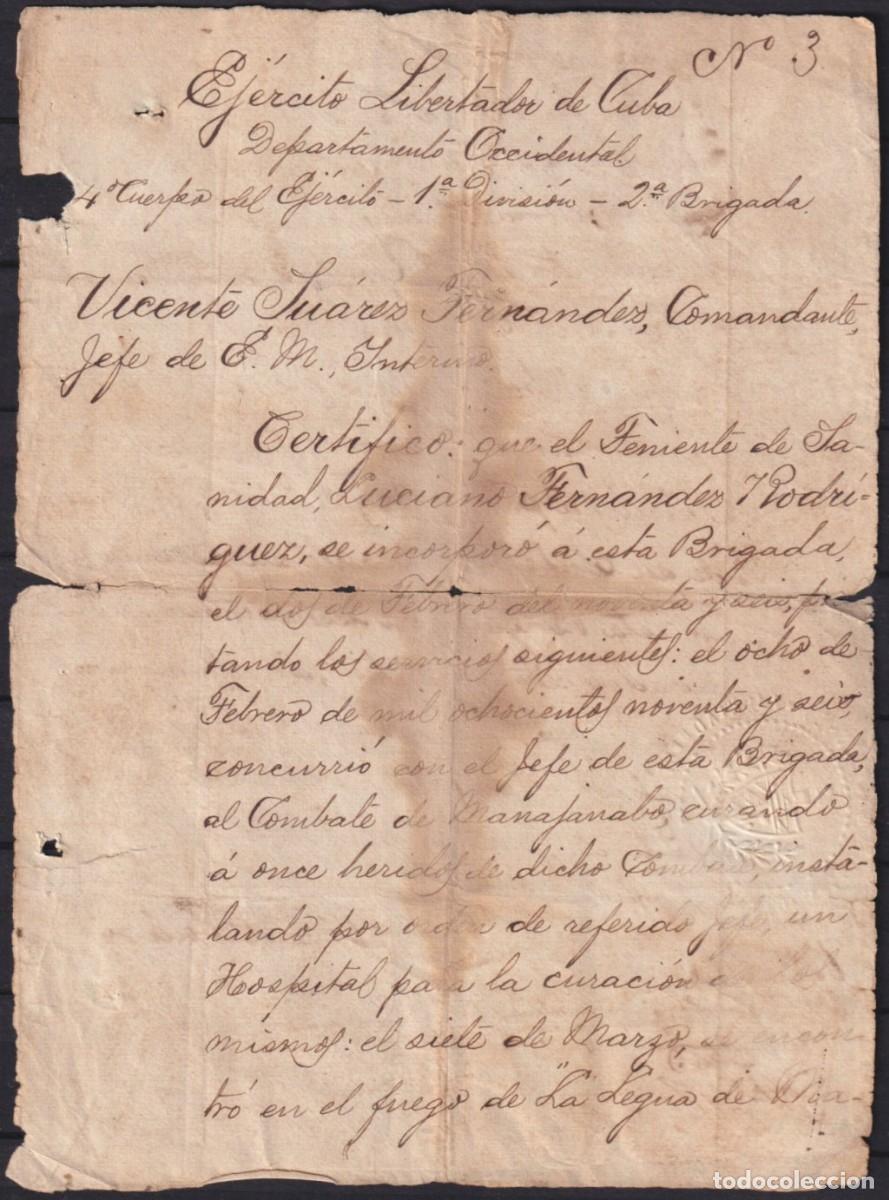 Nº 3
Ejército Libertador de Cuba
Departamento Occidental
4º Cuerpo del Ejército - 1.ª División - 2.ª Brigada.
Vicente Suárez Fernández, Comandante,
Jefe de E. M., Interino.
Certifico: que el Teniente de Sa-
nidad, Luciano Fernández Rodrí-
guez, se incorporó á esta Brigada,
el dos de Febrero del noventa y seis,
tando los servicios siguientes: el ocho de
Febrero de mil ochocientos noventa y seis,
concurrió con el Jefe de esta Brigada,
al Combate de Manajanabo, curando
á once heridos de dicho Combate, insta-
lando por orden de referido Jefe, un
Hospital para la curación
mismos: el siete de Marzo, se encon-
tró en el fuego de "La Legua de
todocoleccion
todocoleccion.net